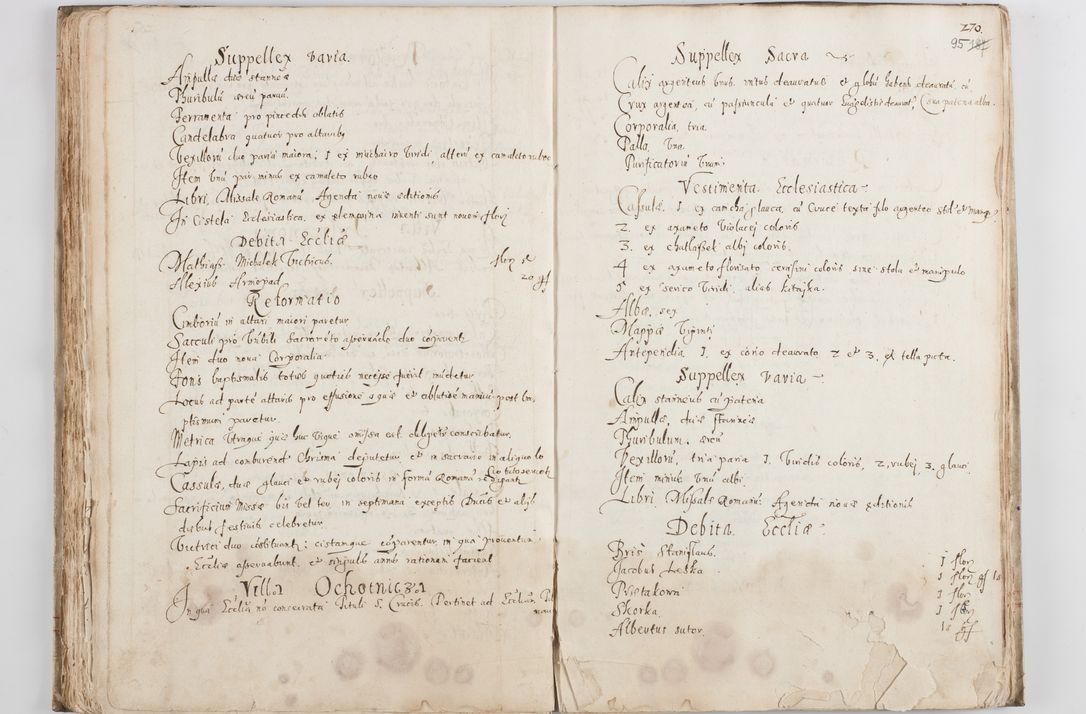 Suppellex varia.
Ampullæ duæ stanneæ
Thuribulū æreū paruū.
Ferramenta pro pixedis oblatis
Candelabra quatuor pro altaribꝫ
Vexillorū duo paria maiora. 1 ex muchairo viridi alterū ex camaleto rubeo
Item vnū par minus ex camaleto rubeo
Libri, Missale Romanū Agenda nouæ editionis
In Cistela Ecclesiastica ex elemosina inuenti sunt nouem flor
Debita Eccliæ
Mathias Michalek Vitricus. flor
Alexius Armorad 20 gr
Reformatio
Cimboriū in altari maiori paretur
Sacculi pro asseruādo duo coparent
Item duo noua Corporalia
Fons baptismalis totus quoties necesse fuerit mūdetur
Locus ad partē altaris pro effusione aquæ et ablutiōe manuū post ba
ptismum paretur.
Metrica vtrinque quæ huc vsque omissa est, diligēter conscribatur.
Lapis ad comburend Chrisma deputetur, et in sacrario in aliquo lo
Cassulæ, duæ glauci et rubej coloris in formā Romanā
Sacrificium Missæ bis vel ter in septimana exceptis Dnicis et alijs
diebus festiuis celebretur
Vitrici duo cōstituant: cistamque coparentur in qua prouentus
Eccliæ asseruabunt, et singulis annis rationem faciant
Villa Ochotnicza
In qua Ecclia nō consecrata Tituli S. Crucis. Pertinet ad Eccliam
270
95
Suppellex Sacra
Calix argenteus vnus intus deauratus et globū habens deauratū, cū
Crux argentea, cū passiuncula et quatuor Euāgelistis deaurat, sua patena alba.
Corporalia, tria
Palla, vna
Purificatoriū vnum
Vestimenta Ecclesiastica
Casulæ. 1 ex camcha glauca, cū Cruce texta filo argenteo stol et manip
2. ex axameto violacej coloris
3. ex albj coloris.
4 ex axameto florisato coloris sine stola et manipulo
5 ex serico viridi, alias kitajka.
Albæ, sex
Mappæ viginti
Antependia 1. ex corio deaurato 2 et 3. ex tella picta.
Suppellex varia
Calix stanneus cū patena
Ampullæ, duæ stanneæ
Thuribulum æreū
Vexillorū, tria paria 1. viridis coloris, 2. rubej, 3. glauci.
Item minus vnū albi
Libri Missale Romanū. Agenda nouæ editionis
Debita Eccliæ
Bris Stanislaus. 1 flor
Jacobus Leska 1 flor gr 18
Pystakowi 1 flor
Skorka 1 flor
Albertus sutor. 18 gr